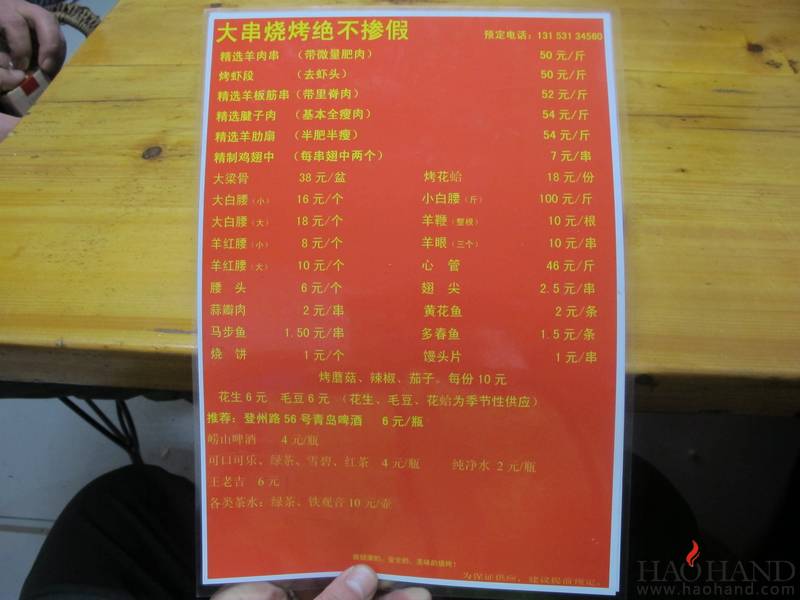 大串烧烤绝不掺假 预定电话：131 531 34560
精选羊肉串 （带微量肥肉） 50 元/斤
烤虾段 （去虾头） 50 元/斤
精选羊板筋串（带里脊肉） 52 元/斤
精选腱子肉 （基本全瘦肉） 54 元/斤
精选羊肋扇 （半肥半瘦） 54 元/斤
精制鸡翅中 （每串翅中两个） 7 元/串
大梁骨 38 元/盆 烤花蛤 18 元/份
大白腰（小） 16 元/个 小白腰（斤） 100 元/斤
大白腰（大） 18 元/个 羊鞭（整根） 10 元/根
羊红腰（小） 8 元/个 羊眼（三个） 10 元/串
羊红腰（大） 10 元/个 心 管 46 元/斤
腰 头 6 元/个 翅 尖 2.5 元/串
蒜瓣肉 2 元/串 黄花鱼 2 元/条
马步鱼 1.50 元/串 多春鱼 1.5 元/条
烧 饼 1 元/个 馒头片 1 元/串
烤蘑菇、辣椒、茄子。每份 10 元
花生 6 元 毛豆 6 元 （花生、毛豆、花蛤为季节性供应）
推荐：登州路 56 号青岛啤酒 6 元/瓶
崂山啤酒 4 元/瓶
可口可乐、绿茶、雪碧、红茶 4 元/瓶 纯净水 2 元/瓶
王老吉 6 元
各类茶水：绿茶、铁观音 10 元/壶
为保证供应，建议提前预定。
HAOHAND
www.haohand.com